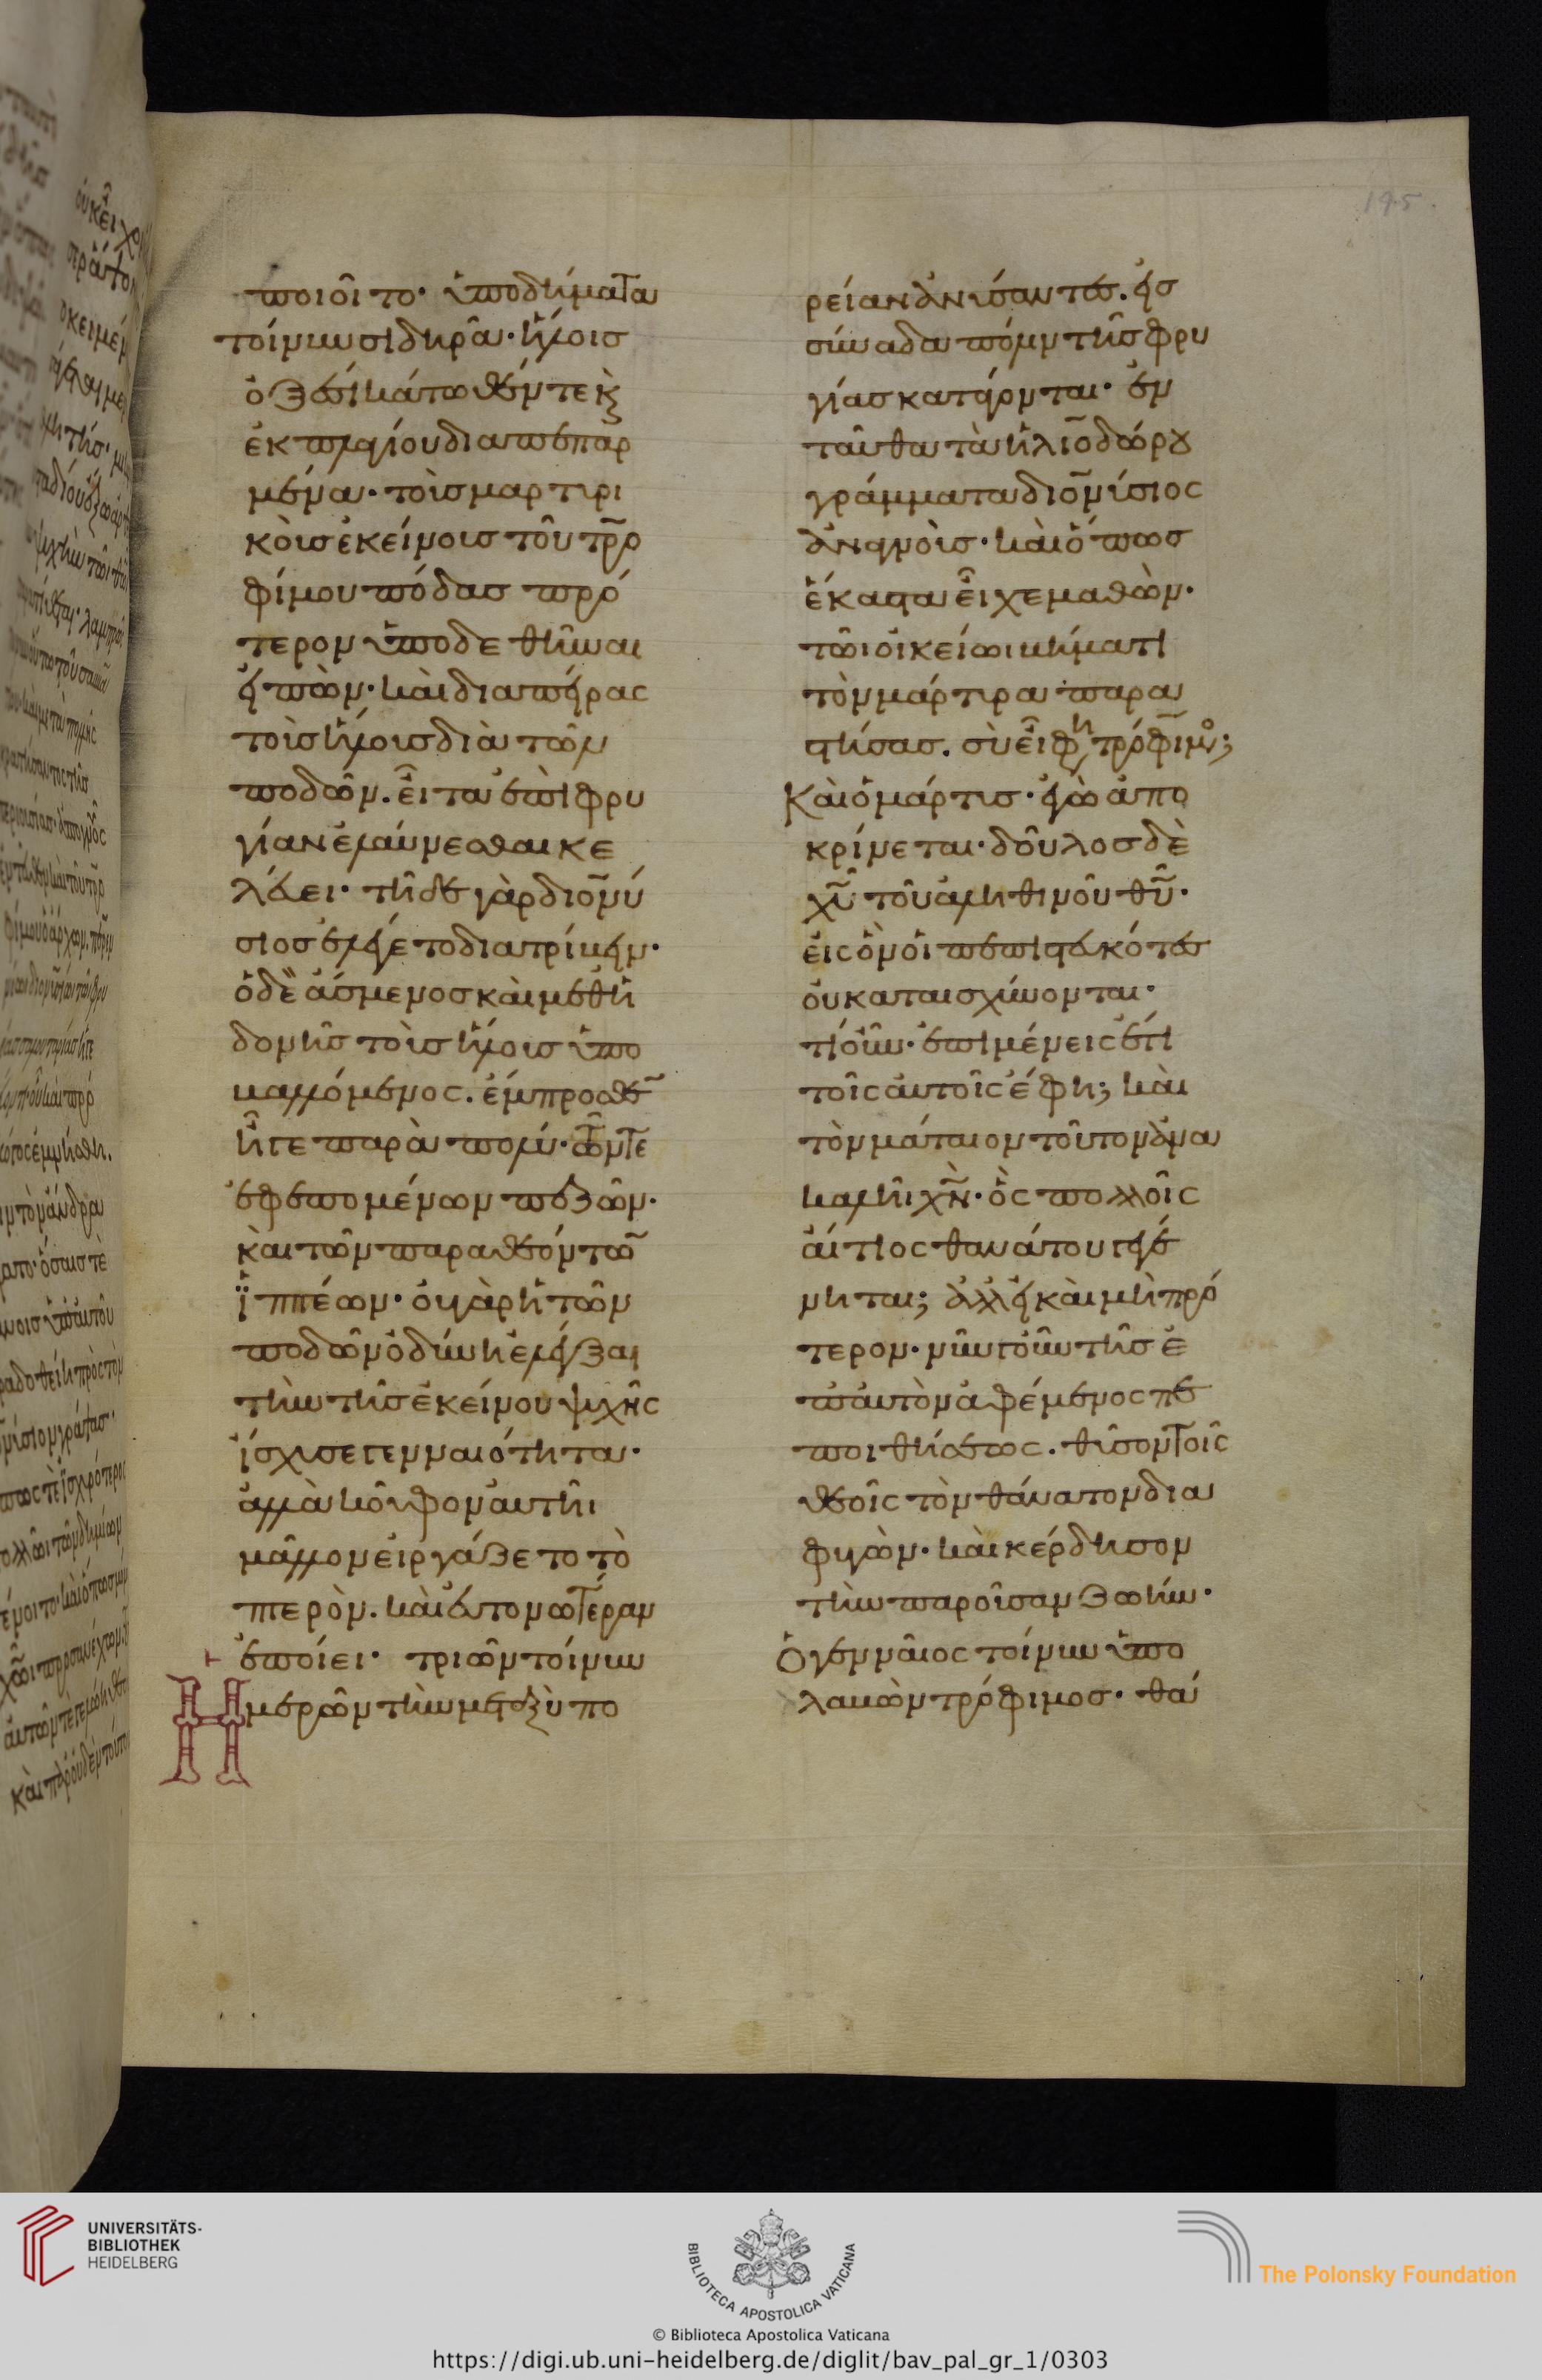 ποιοῖτο· ὑποδήματα
τοίνυν σιδηρᾶ· ἥλοις
ὀξέσι κάτωθέν τε κ̀
ἐκ πλαγίου διαπεπαρ
μένα· τοῖς μαρτυρι
κοῖς ἐκείνοις τοῦ τρο
φίμου πόδας πρό
τερον ὑποδεθῆναι
εἰπὼν· καὶ διαπείρας
τοῖς ἥλοις διὰ τῶν
ποδῶν. εἶτα ἐπὶ φρυ
γίαν ἐλαύνεσθαι κε
λεύει· τῆδε γὰρ διονύ
σιος ἐλέγετο διατρίβειν·
ὁ δὲ ἄσμενος καὶ μεθ' ἡ
δονῆς τοῖς ἥλοις ὑπο
βαλλόμενος. ἔμπροσθε̄
παρὰ πολὺ· τῶν τε
ἐφεπομένων πεζῶν·
καὶ τῶν παραθεόντω̄
ἱππέων· οὐ γὰρ ἡ τῶν
ποδῶν ὀδύνη ἐλέγξαι
τὴν τῆς ἐκείνου ψυχῆς
ἴσχυσε γενναιότητα·
ἀλλὰ κοῦφον αὐτῆι
μᾶλλον εἰργάζετο τὸ
πτερὸν. καὶ εὐτονωτέραν
ἐποίει· τριῶν τοίνυν
Ἡμερῶν τὴν μεταξὺ πο
ρείαν ἀνύσαντες. εἰς
σύναδα πόλιν τῆς φρυ
γίας καταίρονται· ἐν
ταῦθα τὰ ἡλιοδώρου
γράμματα διονύσιος
ἀναγνοὺς· καὶ ὅπως
ἕκαστα εἶχε μαθὼν·
τῶι οἰκείωι βήματι
τὸν μάρτυρα παρα
στήσας. σὺ εἶ φη τρόφιμος;
Καὶ ὁ μάρτυς· ἐγὼ ἀπο
κρίνεται· δοῦλος δὲ
χ̅υ̅ τοῦ ἀληθινοῦ θ̅υ̅·
εἰς ὃν οἱ πεπιστευκότες
οὐ καταισχύνονται·
τί οὖν· ἐπιμένεις ἔτι
τοῖς αὐτοῖς ἔφη; καὶ
τὸν μάταιον τοῦτον ἀνα
καλῆι χ̅ν̅· ὃς πολλοῖς
αἴτιος θανάτου γεγέ
νηται; ἀλλ' εἰ καὶ μὴ πρό
τερον· νῦν γοῦν τῆς ἐ
π' αὐτὸν ἀφέμενος πε
ποιθήσεως. θῦσον τοῖς
θεοῖς τὸν θάνατον δια
φυγὼν· καὶ κέρδησον
τὴν παροῦσαν ζωήν·
Ὁ γενναῖος τοίνυν ὑπο
λαβὼν τρόφιμος· θα
195.
UNIVERSITÄTS-
BIBLIOTHEK
HEIDELBERG
BIBLIOTECA APOSTOLICA VATICANA
The Polonsky Foundation
© Biblioteca Apostolica Vaticana
https://digi.ub.uni-heidelberg.de/diglit/bav_pal_gr_1/0303